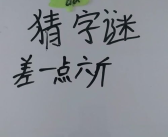 猜字谜
差一点六斤